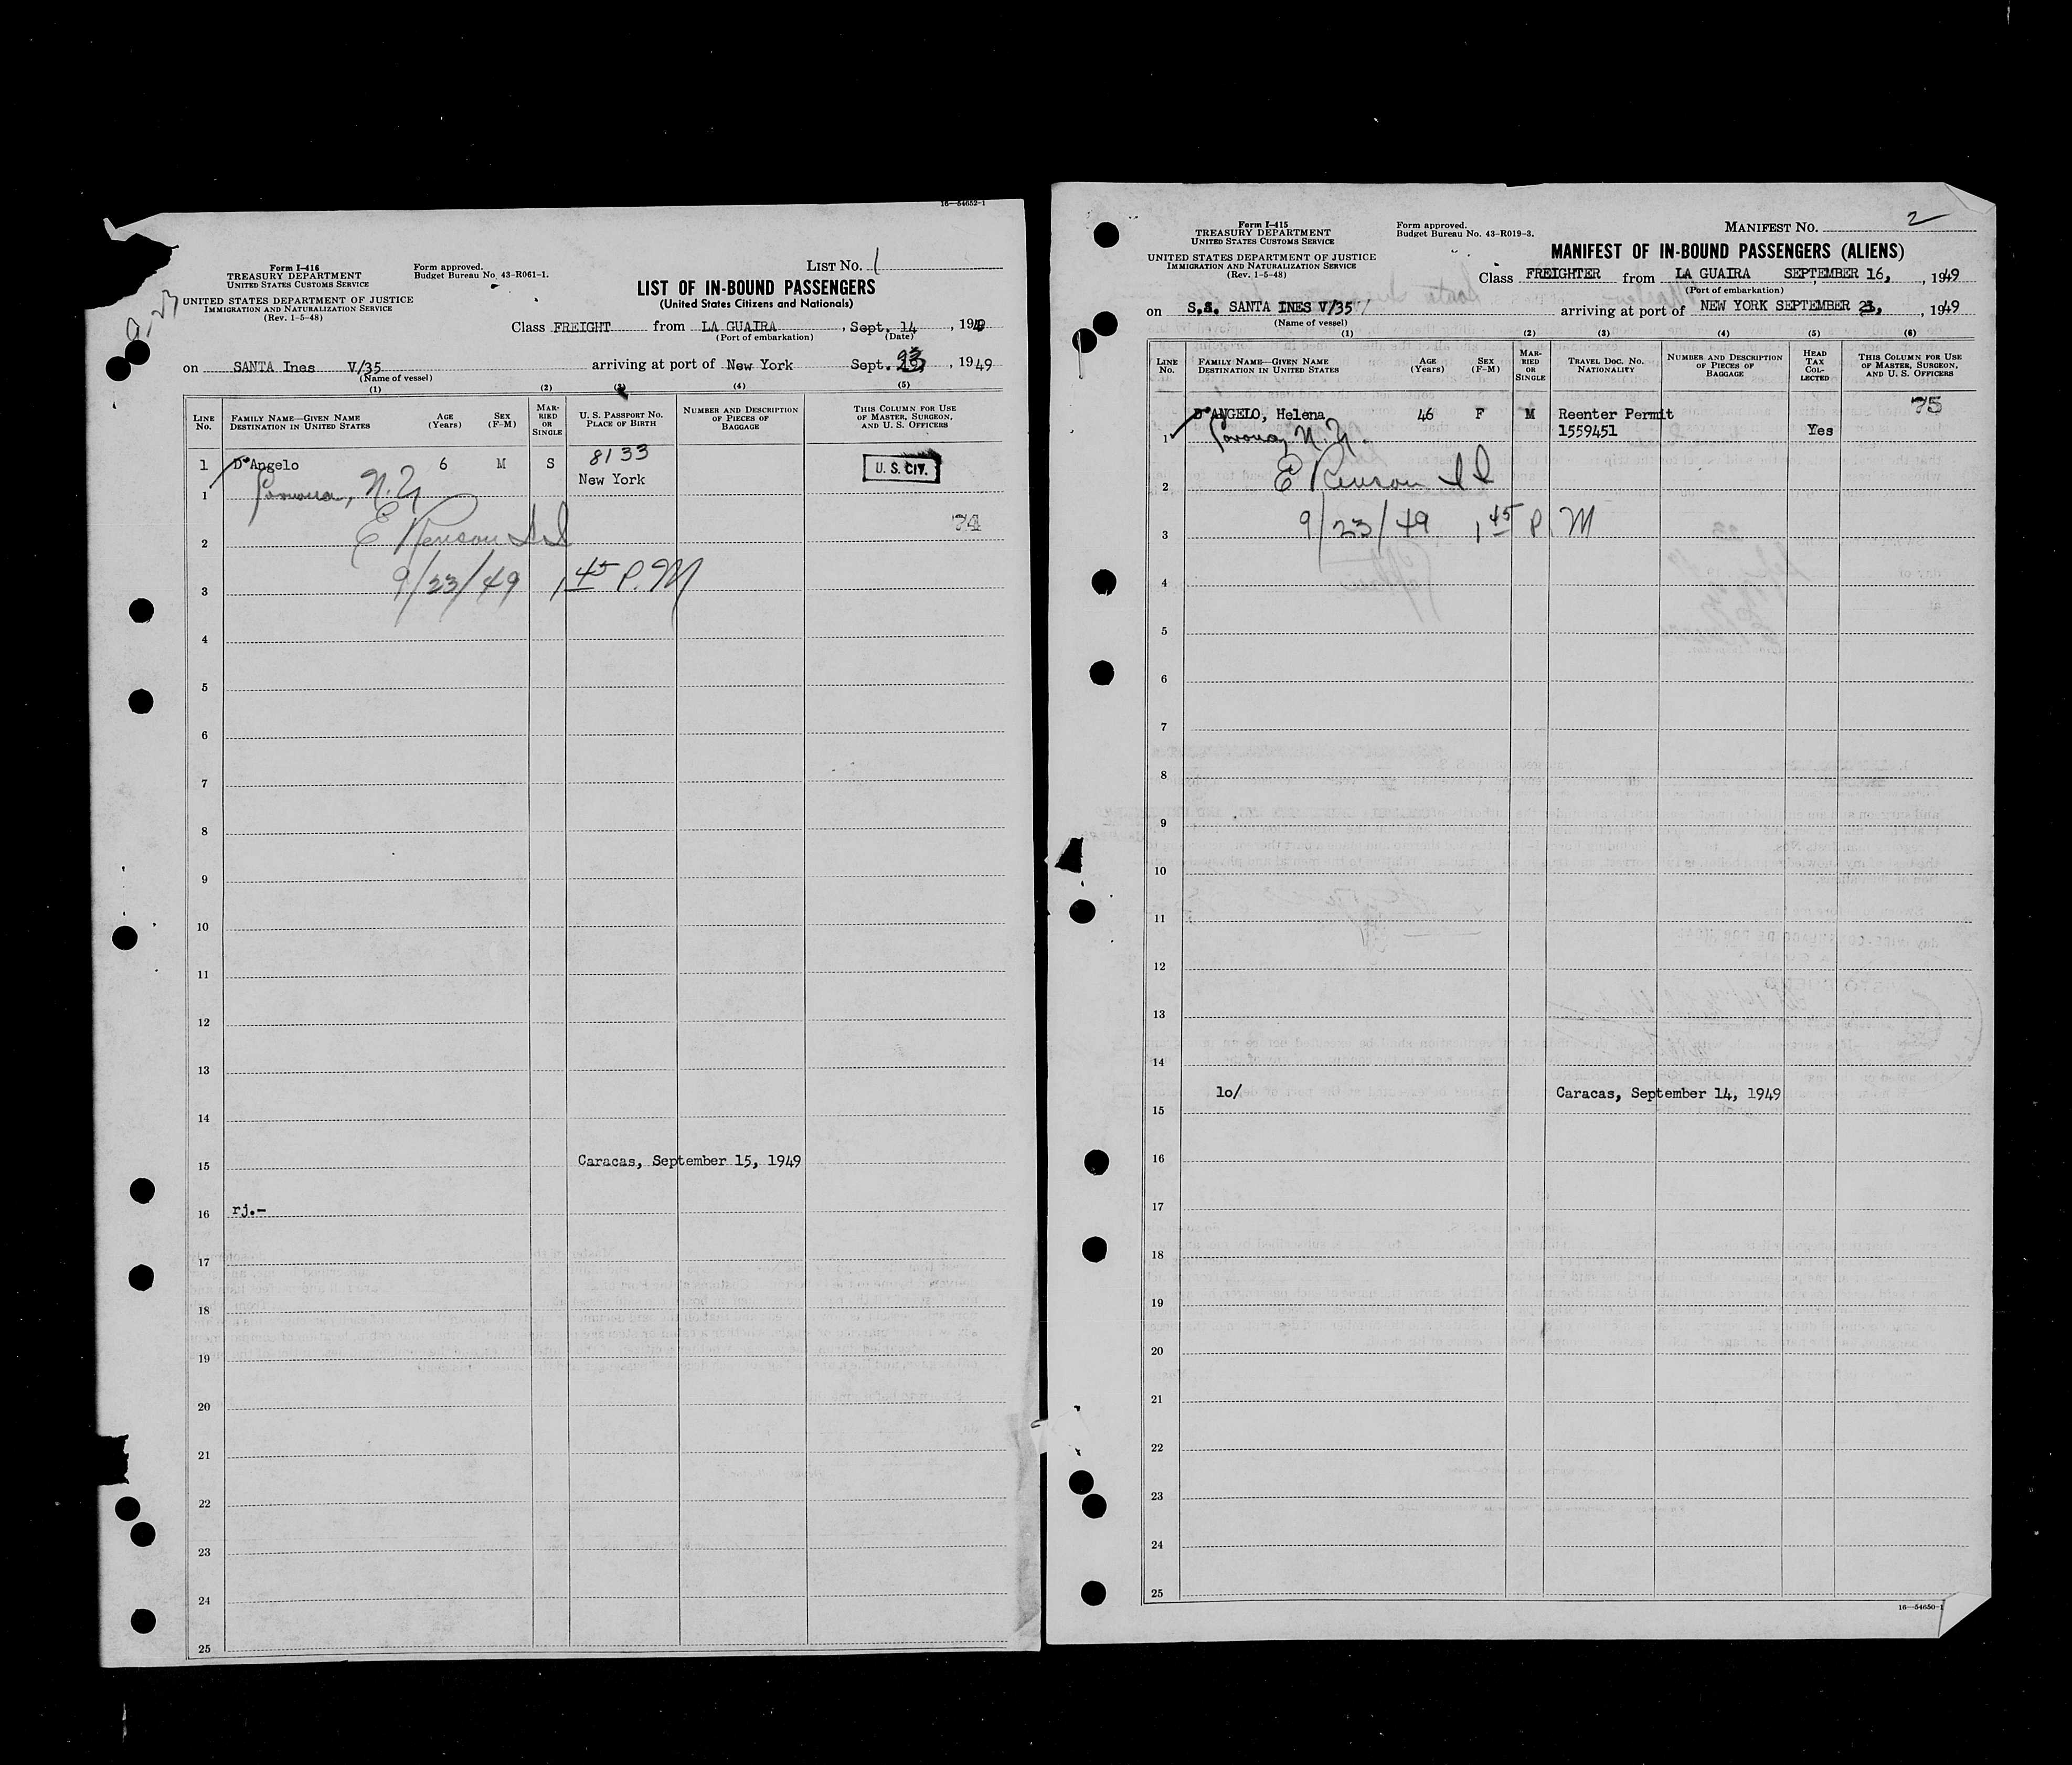 16—54652-1
Form I-416
TREASURY DEPARTMENT
UNITED STATES CUSTOMS SERVICE
UNITED STATES DEPARTMENT OF JUSTICE
IMMIGRATION AND NATURALIZATION SERVICE
(Rev. 1-5-48)
Form approved.
Budget Bureau No. 43-R061-1.
LIST NO. 1
LIST OF IN-BOUND PASSENGERS
(United States Citizens and Nationals)
Class FREIGHT from LA GUAIRA, Sept. 14, 1949
(Port of embarkation) (Date)
on SANTA Ines V/35 arriving at port of New York Sept. 23, 1949
(Name of vessel)
(1) (2) (3) (4) (5)
LINE No. FAMILY NAME—GIVEN NAME DESTINATION IN UNITED STATES AGE (Years) SEX (F-M) MARRIED OR SINGLE U. S. PASSPORT NO. PLACE OF BIRTH NUMBER AND DESCRIPTION OF PIECES OF BAGGAGE THIS COLUMN FOR USE OF MASTER, SURGEON, AND U. S. OFFICERS
1 D'Angelo 6 M S 8133 New York U. S. CIT.
1 Corona, N.Y.
2 E Renson 74
3 9/23/49 1 45 P.M
4
5
6
7
8
9
10
11
12
13
14
15 Caracas, September 15, 1949
16 rj.-
17
18
19
20
21
22
23
24
25
Form I-415
TREASURY DEPARTMENT
UNITED STATES CUSTOMS SERVICE
UNITED STATES DEPARTMENT OF JUSTICE
IMMIGRATION AND NATURALIZATION SERVICE
(Rev. 1-5-48)
Form approved.
Budget Bureau No. 43-R019-3.
MANIFEST NO. 2
MANIFEST OF IN-BOUND PASSENGERS (ALIENS)
Class FREIGHTER from LA GUAIRA SEPTEMBER 16, 1949
(Port of embarkation)
on S.S. SANTA INES V/35 arriving at port of NEW YORK SEPTEMBER 23, 1949
(Name of vessel)
(1) (2) (3) (4) (5) (6)
LINE No. FAMILY NAME—GIVEN NAME DESTINATION IN UNITED STATES AGE (Years) SEX (F-M) MARRIED OR SINGLE TRAVEL DOC. NO. NATIONALITY NUMBER AND DESCRIPTION OF PIECES OF BAGGAGE HEAD TAX COLLECTED THIS COLUMN FOR USE OF MASTER, SURGEON, AND U. S. OFFICERS
D'ANGELO, Helena 46 F M Reenter Permit 75
1 Corona, N.Y. 1559451 Yes
2 E Renson
3 9/23/49 1 45 P.M
4
5
6
7
8
9
10
11
12
13
14
lo/ Caracas, September 14, 1949
15
16
17
18
19
20
21
22
23
24
25
16—54650-1